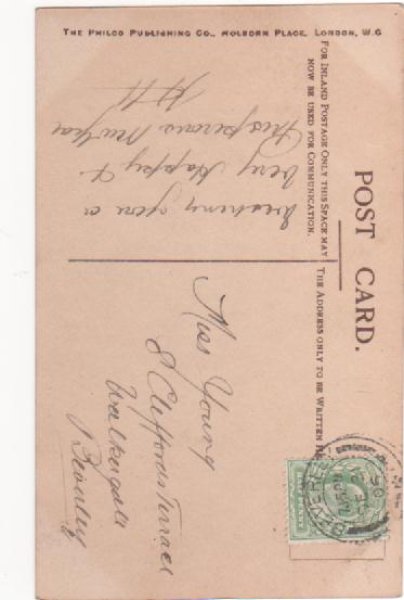 THE PHILCO PUBLISHING CO., HOLBORN PLACE, LONDON, W.C
POST CARD.
FOR INLAND POSTAGE ONLY THIS SPACE MAY
NOW BE USED FOR COMMUNICATION.
THE ADDRESS ONLY TO BE WRITTEN
Wishing you a
very Happy &
Prosperous New Year
Miss Young
8 Clifford Terrace
Walkergate
BEVERLEY
HALF PENNY